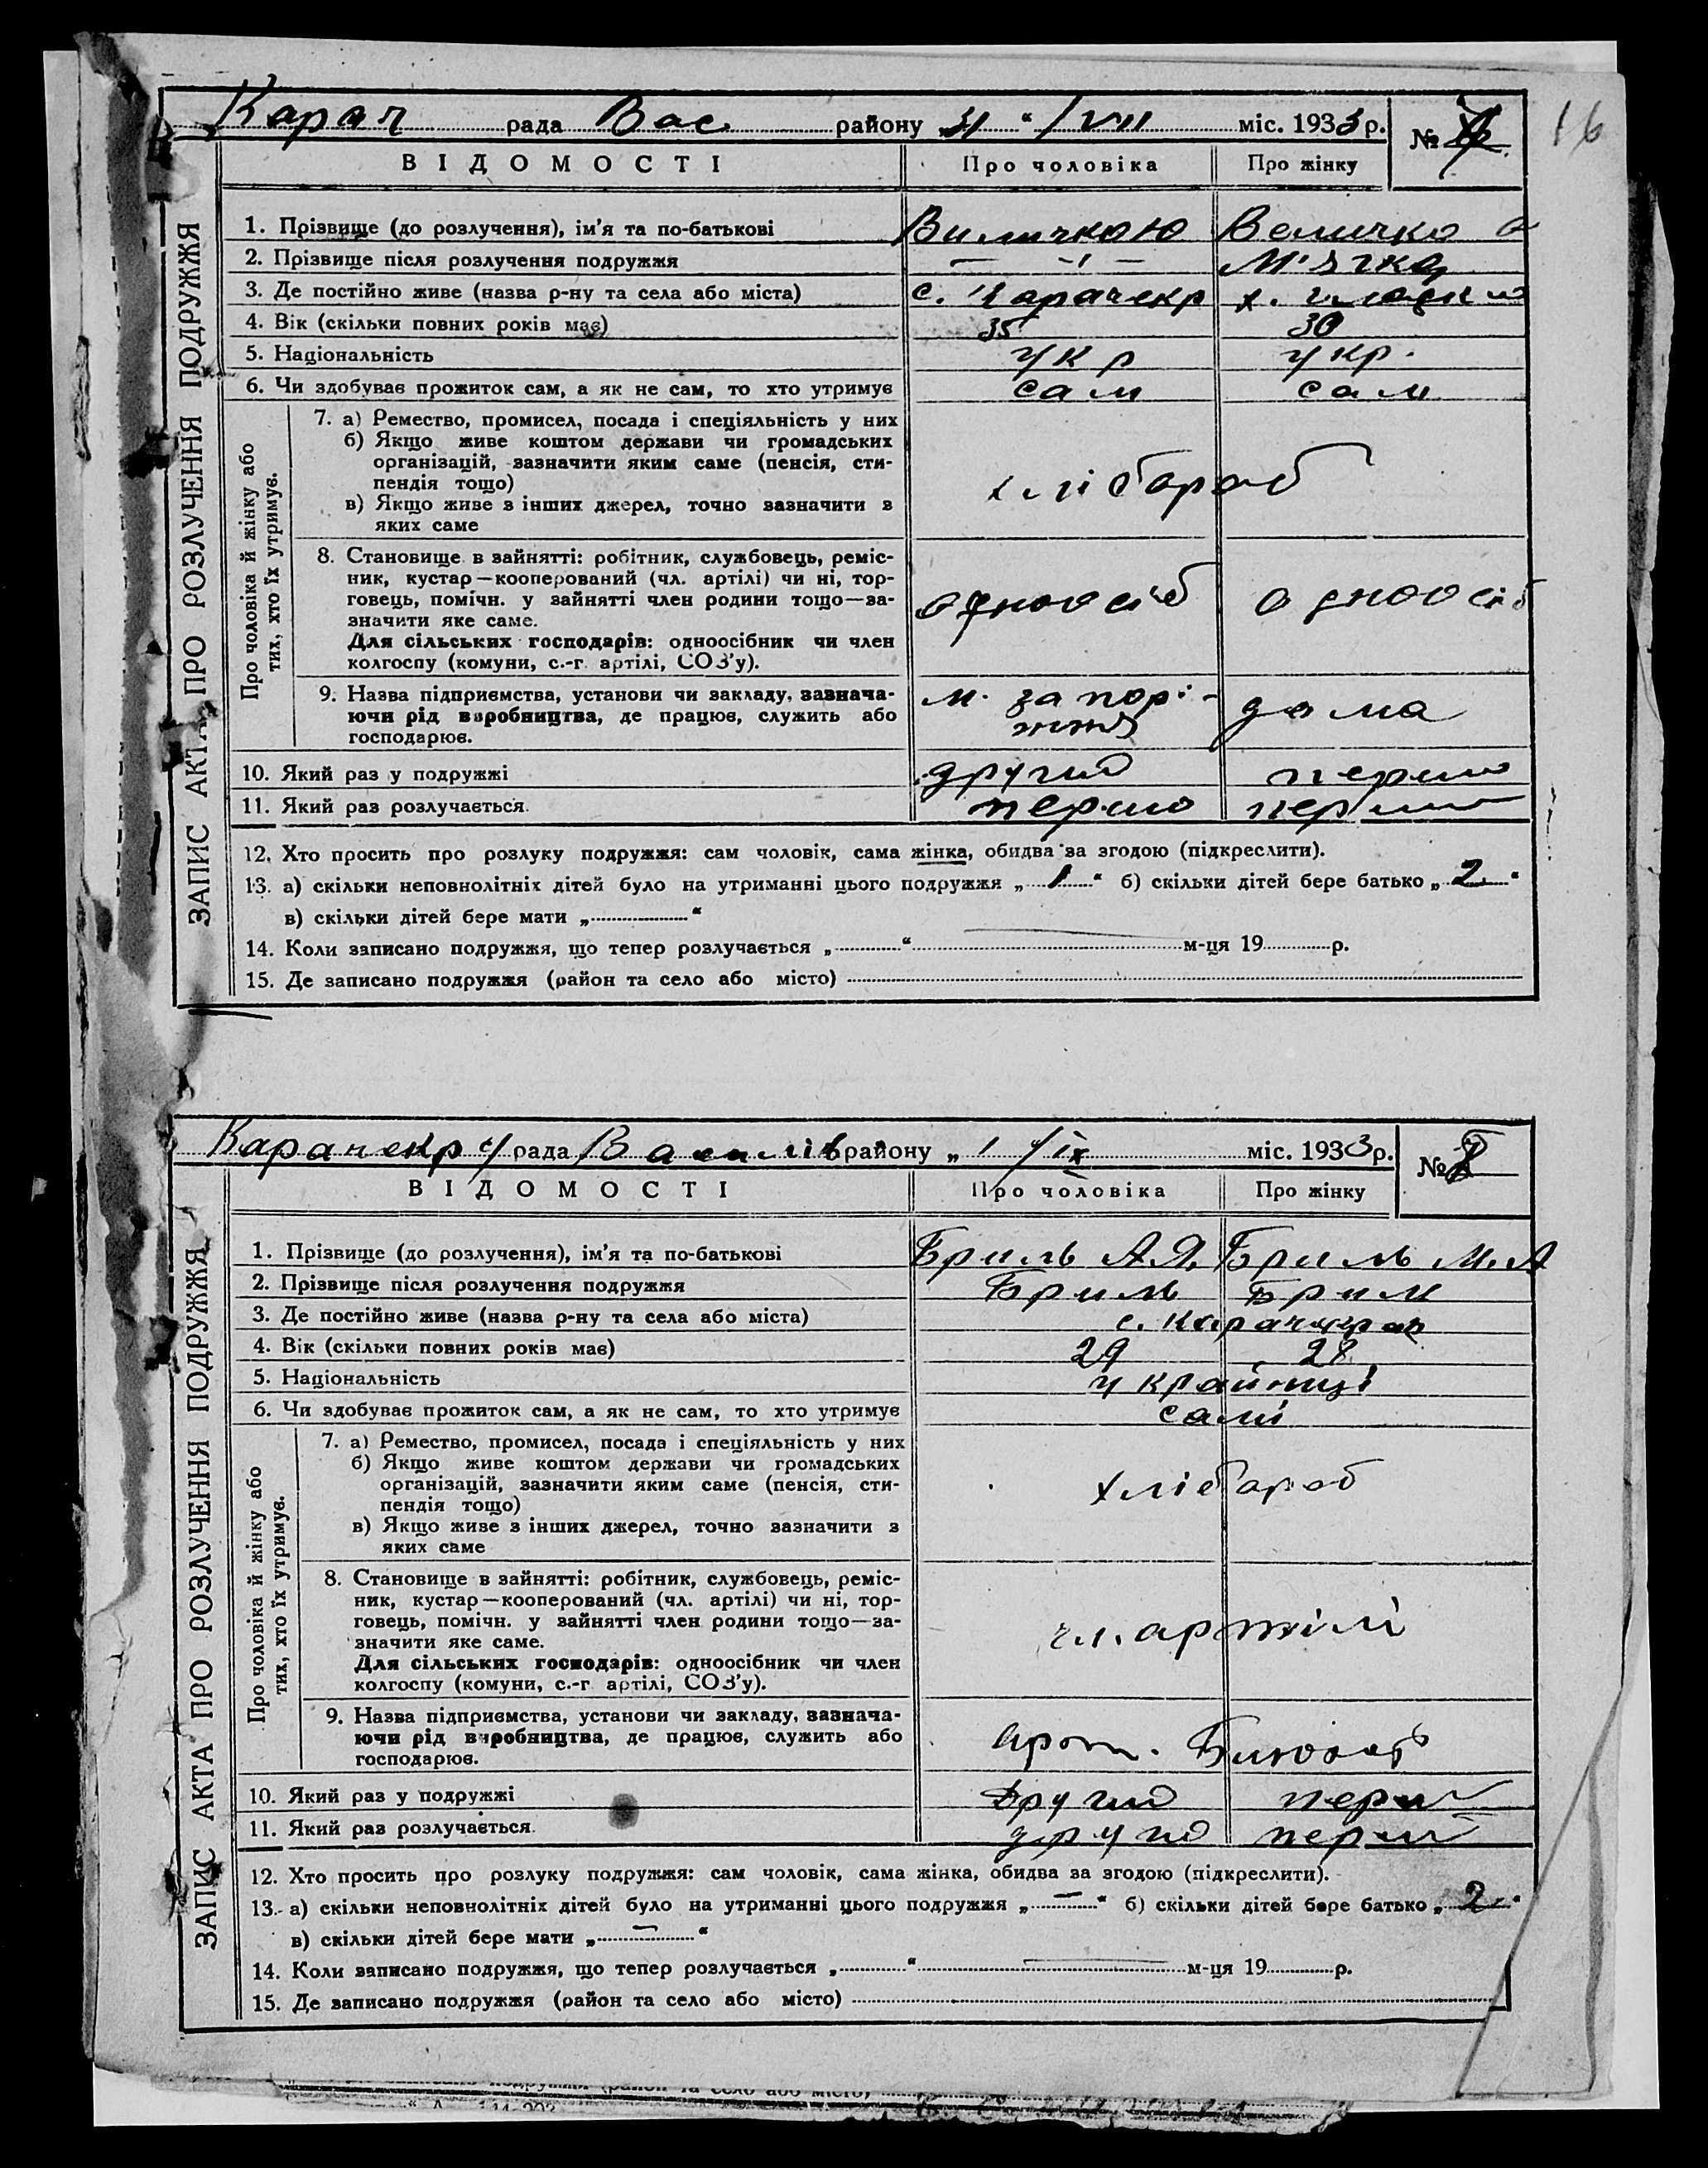 16
Карач рада Вас району „31“ / VII міс. 1933 р. №
ВІДОМОСТІ Про чоловіка Про жінку
ЗАПИС АКТА ПРО РОЗЛУЧЕННЯ ПОДРУЖЖЯ
1. Прізвище (до розлучення), ім'я та по-батькові Величко
2. Прізвище після розлучення подружжя — " —
3. Де постійно живе (назва р-ну та села або міста) с. Карачекр х.
4. Вік (скільки повних років має) 35 30
5. Національність укр укр.
6. Чи здобуває прожиток сам, а як не сам, то хто утримує сам сам
Про чоловіка й жінку або
тих, хто їх утримує.
7. а) Ремество, промисел, посада і спеціяльність у них
б) Якщо живе коштом держави чи громадських
організацій, зазначити яким саме (пенсія, сти-
пендія тощо) хлібороб
в) Якщо живе з інших джерел, точно зазначити з
яких саме
8. Становище в зайнятті: робітник, службовець, реміс-
ник, кустар—кооперований (чл. артілі) чи ні, тор-
говець, помічн. у зайнятті член родини тощо—за- одноосіб одноосіб
значити яке саме.
Для сільських господарів: одноосібник чи член
колгоспу (комуни, с.-г. артілі, СОЗ'у).
9. Назва підприємства, установи чи закладу, зазнача- м. запорі-
ючи рід виробництва, де працює, служить або жжя дома
господарює.
10. Який раз у подружжі другий перший
11. Який раз розлучається перший
12. Хто просить про розлуку подружжя: сам чоловік, сама жінка, обидва за згодою (підкреслити).
13. а) скільки неповнолітніх дітей було на утриманні цього подружжя „1“ б) скільки дітей бере батько „2“
в) скільки дітей бере мати „ “
14. Коли записано подружжя, що тепер розлучається „ “ м-ця 19 р.
15. Де записано подружжя (район та село або місто)
Карачекру рада Василів району „1 / IX міс. 1933 р. №
ВІДОМОСТІ Про чоловіка Про жінку
ЗАПИС АКТА ПРО РОЗЛУЧЕННЯ ПОДРУЖЖЯ
1. Прізвище (до розлучення), ім'я та по-батькові Бриль А.Я. Бриль М.А
2. Прізвище після розлучення подружжя Бриль Брил
3. Де постійно живе (назва р-ну та села або міста) с. Карачекрак
4. Вік (скільки повних років має) 29 28
5. Національність українці
6. Чи здобуває прожиток сам, а як не сам, то хто утримує самі
Про чоловіка й жінку або
тих, хто їх утримує.
7. а) Ремество, промисел, посада і спеціяльність у них
б) Якщо живе коштом держави чи громадських
організацій, зазначити яким саме (пенсія, сти- хлібороб
пендія тощо)
в) Якщо живе з інших джерел, точно зазначити з
яких саме
8. Становище в зайнятті: робітник, службовець, реміс-
ник, кустар—кооперований (чл. артілі) чи ні, тор-
говець, помічн. у зайнятті член родини тощо—за- чл. артілі
значити яке саме.
Для сільських господарів: одноосібник чи член
колгоспу (комуни, с.-г артілі, СОЗ'у).
9. Назва підприємства, установи чи закладу, зазнача-
ючи рід виробництва, де працює, служить або арт.
господарює.
10. Який раз у подружжі другий перш
11. Який раз розлучається другий перш
12. Хто просить про розлуку подружжя: сам чоловік, сама жінка, обидва за згодою (підкреслити).
13. а) скільки неповнолітніх дітей було на утриманні цього подружжя „—“ б) скільки дітей бере батько „2“
в) скільки дітей бере мати „—“
14. Коли записано подружжя, що тепер розлучається „ “ м-ця 19 р.
15. Де записано подружжя (район та село або місто)